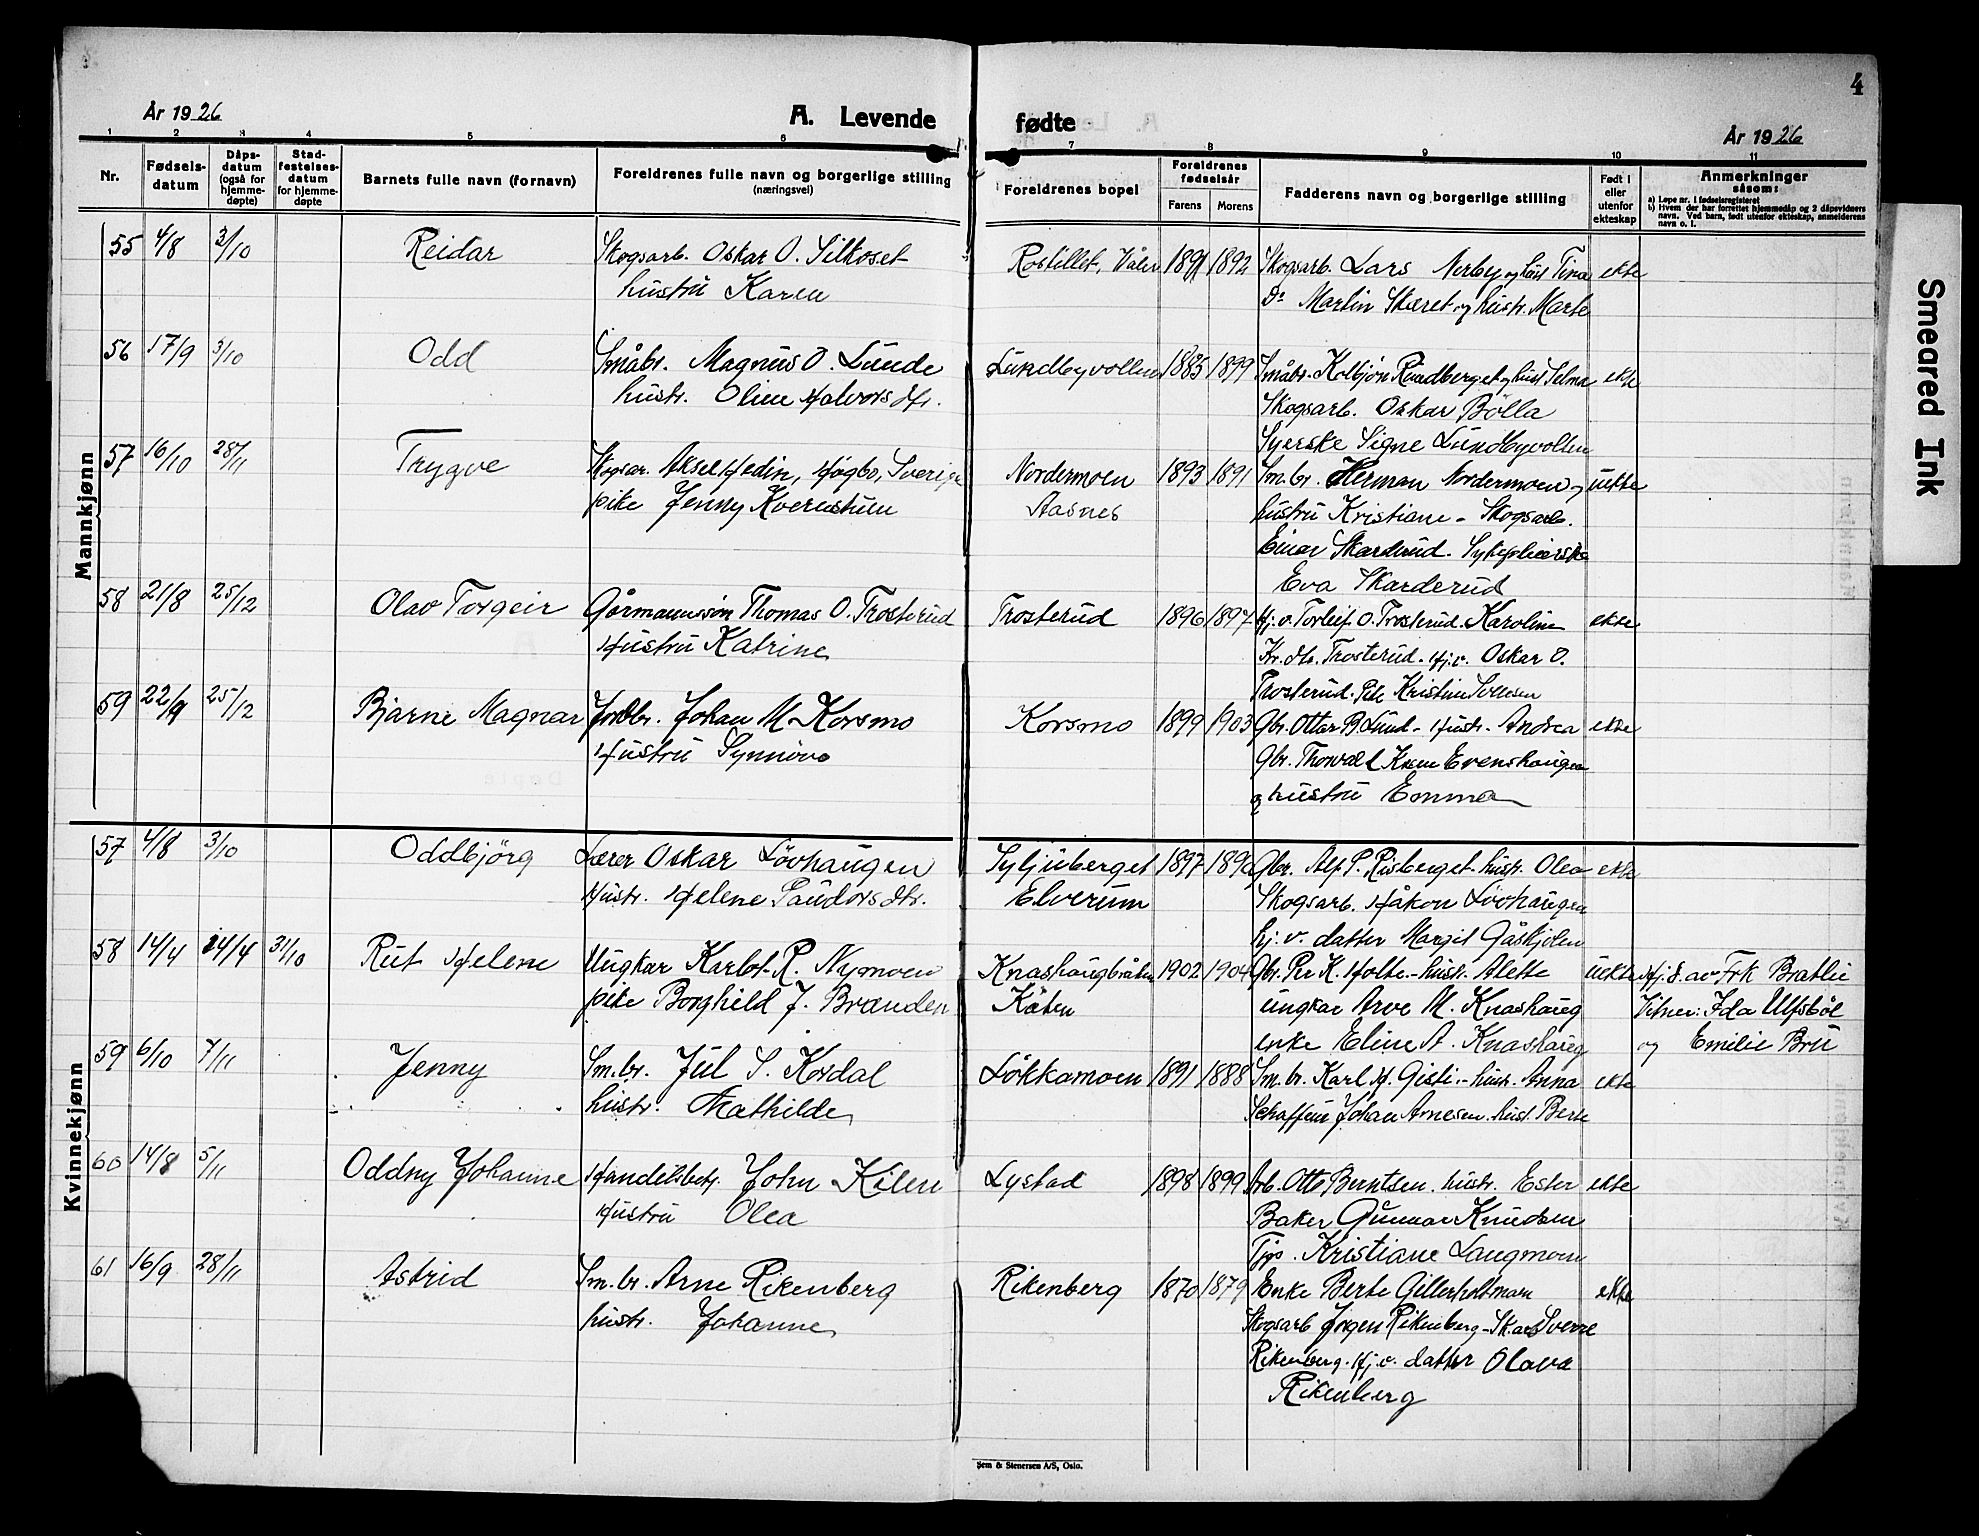 4
År 1926
A. Levende
fødte
År 1926
1 2 3 4 5 6 7 8 9 10 11
Nr.
Fødsels-
datum
Dåps-
datum
(også for
hjemme-
døpte)
Stad-
festelses-
datum
for hjemme-
døpte
Barnets fulle navn (fornavn)
Foreldrenes fulle navn og borgerlige stilling
(næringsvei)
Foreldrenes bopel
Foreldrenes
fødselsår
Farens Morens
Fadderens navn og borgerlige stilling
Født i
eller
utenfor
ekteskap
Anmerkninger
såsom:
a) Løpe nr. i fødselsregisteret
b) Hvem der har forrettet hjemmedåp og 2 dåpsvidners
navn. Ved barn, født utenfor ekteskap, anmelderens
navn o. l.
Mannkjønn
55 4/8 3/10 Reidar Skogsarb. Oskar O. Silkoset Våler 1891 1892 Skogsarb. Lars Nerby og hust Tina ekte
hustru Karen Do Martin Skæret og hustr. Marte
56 17/9 3/10 Odd Småbr. Magnus O. Lunde Lundbyvollen 1885 1899 Småbr. Kolbjøn Rundberget og hust Selma ekte
hustr. Oline Halvorsdtr. Skogsarb. Oskar Bølla
Syerske Signe Lundbyvollen
57 16/10 28/11 Trygve Skogsar. Aksel Hedin, Høgbo, Sverige Nordermoen 1893 1891 Sm.br. Herman Nordermoen og uekte
pike Jenny Kverustuen Aasnes hustru Kristiane - Skogsarb.
Einar Skarderud. Sykepleierske
Eva Skarderud
58 21/8 25/12 Olav Torgeir Gårmannssøn Thomas O. Trosterud Trosterud 1896 1897 Hj.v. Torleif O. Trosterud. Karoline ekte
Hustru Katrine Kr.dtr. Trosterud. Hj.v. Oskar O.
Trosterud. Pike Kristine
59 22/9 25/12 Bjarne Magnar Jordbr. Johan M. Korsmo Korsmo 1899 1903 Gbr. Ottar B. Lund - Hustr. Andrea ekte
Hustru Synnøve Gbr. Thorvald Evenshaugen
og hustru Emma
Kvinnekjønn
57 4/8 3/10 Oddbjörg Lærer Oskar Lövhaugen Syljuberget 1897 1890 Gbr. Alf P. Risberget. hustr. Olea ekte
Hustr. Helene Paudorsdtr. Elverum Skogsarb. Håkon Lövhaugen
hj. v. datter Margit Gåskjolen
58 14/4 14/4 31/10 Rut Helene Ungkar Karlot R. Nymoen Knashaugbråten 1902 1904 Gbr. Per K. Holte - hustr. Alette uekte Hj.d. av Frk Bratlie
pike Borghild J. Branden Kåten ungkar Arve M. Knashaug Vitner: Ida Ulfsböl
enke Eline A. Knashaug og Emilie Bru
59 6/10 7/11 Jenny Sm.br. Jul S. Kordal Lökkamoen 1891 1888 Sm.br. Karl H. Gisti - hust. Anna ekte
hustr. Mathilde Johan Arnesen. hust. Berte
60 14/8 5/11 Oddny Johanne Handelsbest. John Kilen Lystad 1898 1899 Arb. Otto Berntsen. hustr. Ester ekte
Hustru Olea Baker Gunnar Knudsen
Tjp. Kristiane Langmoen
61 16/9 28/11 Astrid Sm.br. Arne Rikenberg Rikenberg 1870 1879 Enke Berte Gillerholtmoen ekte
hustr. Johanne Skogsarb Jörgen Rikenberg - Sk.arb Sverre
Rikenberg. Hj.v. datter Olava
Rikenberg
Sem & Stenersen A/S, Oslo.
Smeared Ink